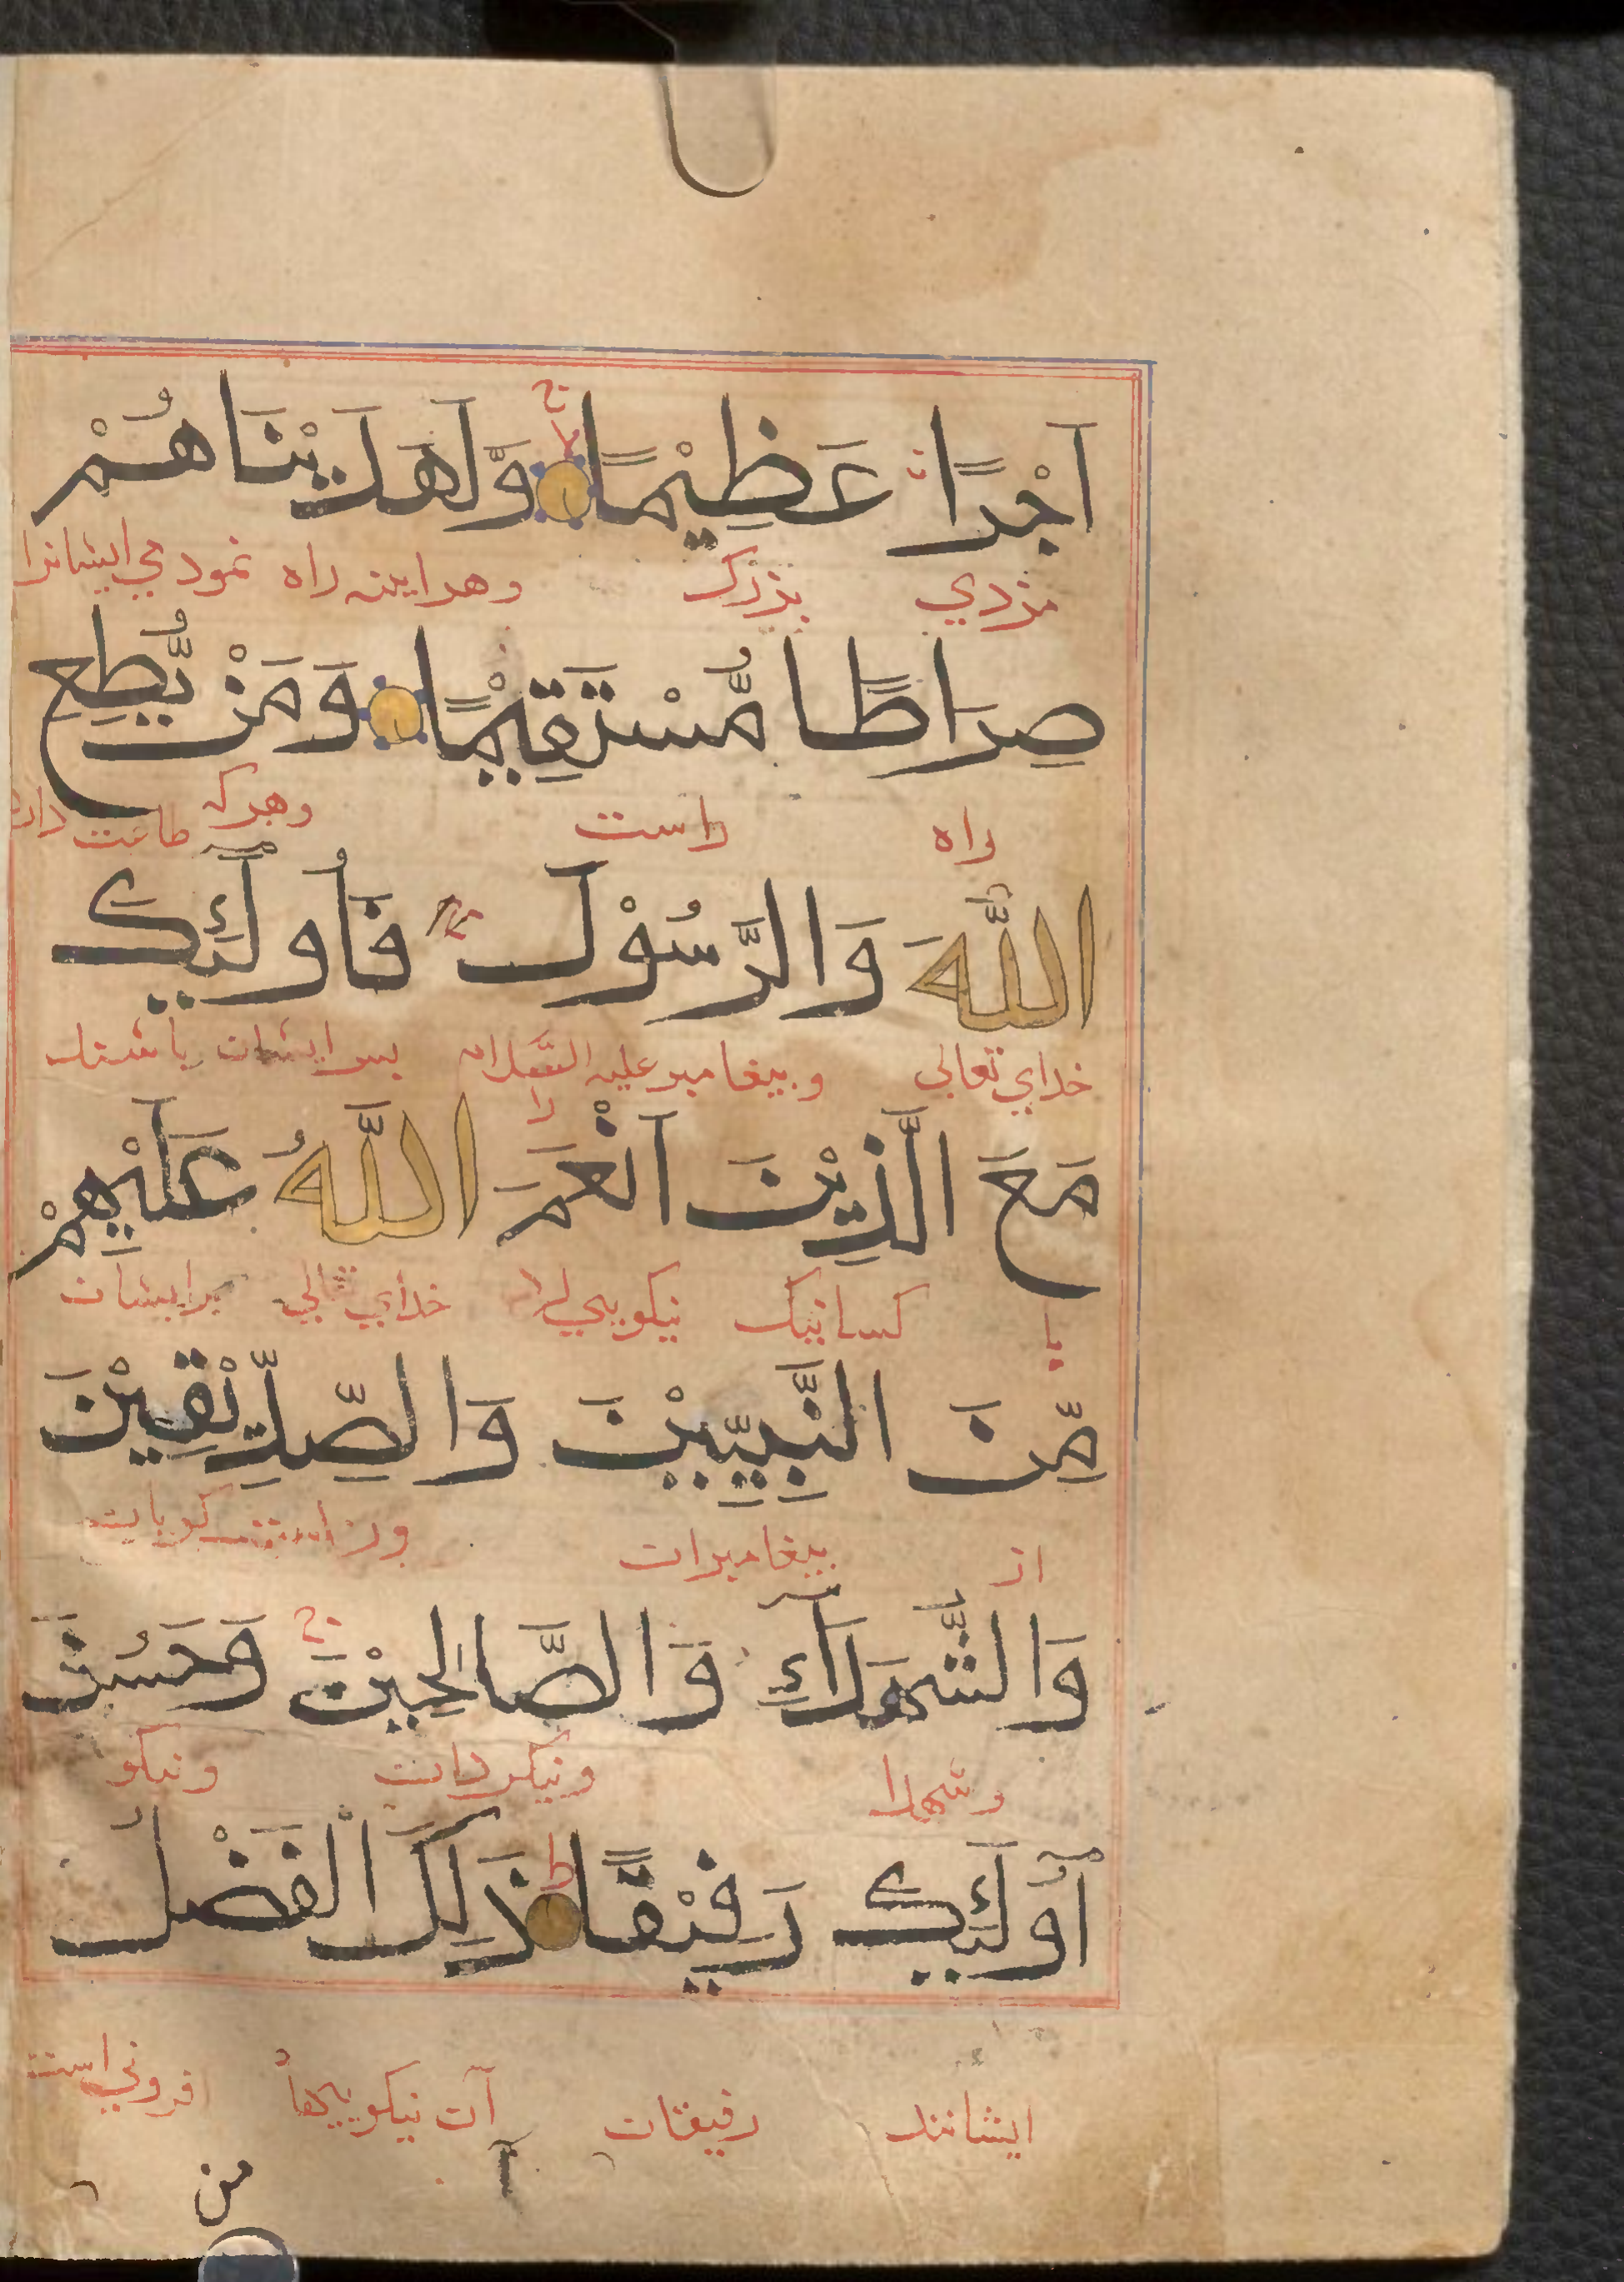 اَجْرًا عَظِيْمًا وَّلَهَدَيْنَاهُمْ
مزدي بزرك وهراينه راه نمودمي ايشانرا
صِرَاطًا مُّسْتَقِيْمًا وَمَنْ يُّطِعِ
راه راست وهركه طاعت دارد
اللّٰهَ وَالرَّسُوْلَ فَاُولٰٓئِكَ
خداي تعالى وبيغامبر عليه السلام را بس ايشان باشند
مَعَ الَّذِيْنَ اَنْعَمَ اللّٰهُ عَلَيْهِمْ
با كسانيك نيكويي خداي تعالي برايشان
مِّنَ النَّبِيّٖيْنَ وَالصِّدِّيْقِيْنَ
از بيغامبران
وَالشُّهَدَآءِ وَالصَّالِحِيْنَ وَحَسُنَ
وشهدا ونيكردان ونيكو
اُولٰٓئِكَ رَفِيْقًا ذٰلِكَ الْفَضْلُ
ايشانند رفيقان آن نيكوييها افزوني است
من